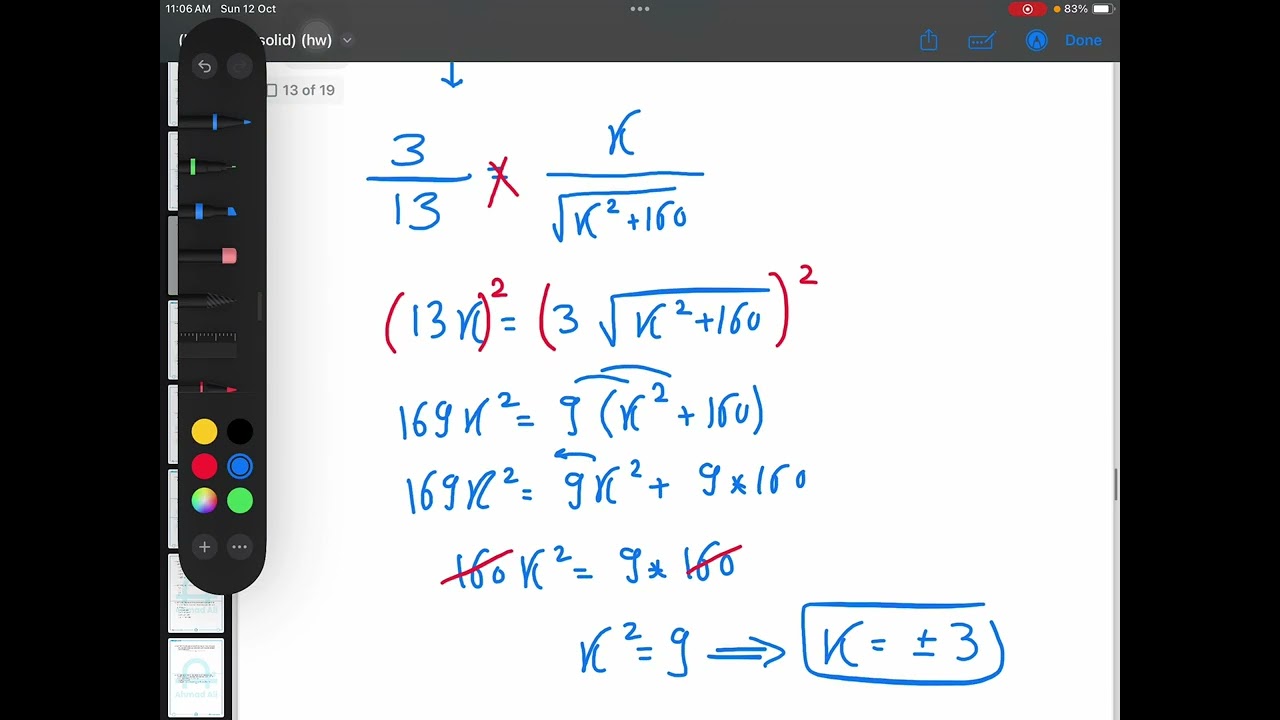 11:06 AM Sun 12 Oct
83%
solid) (hw)
Done
13 of 19
3/13 = K/√(K²+160)
(13K)² = (3√(K²+160))²
169K² = 9(K²+160)
169K² = 9K² + 9*160
160K² = 9*160
K² = 9 ⟹ K = ±3
Ahmad Ali
Ahmad Ali